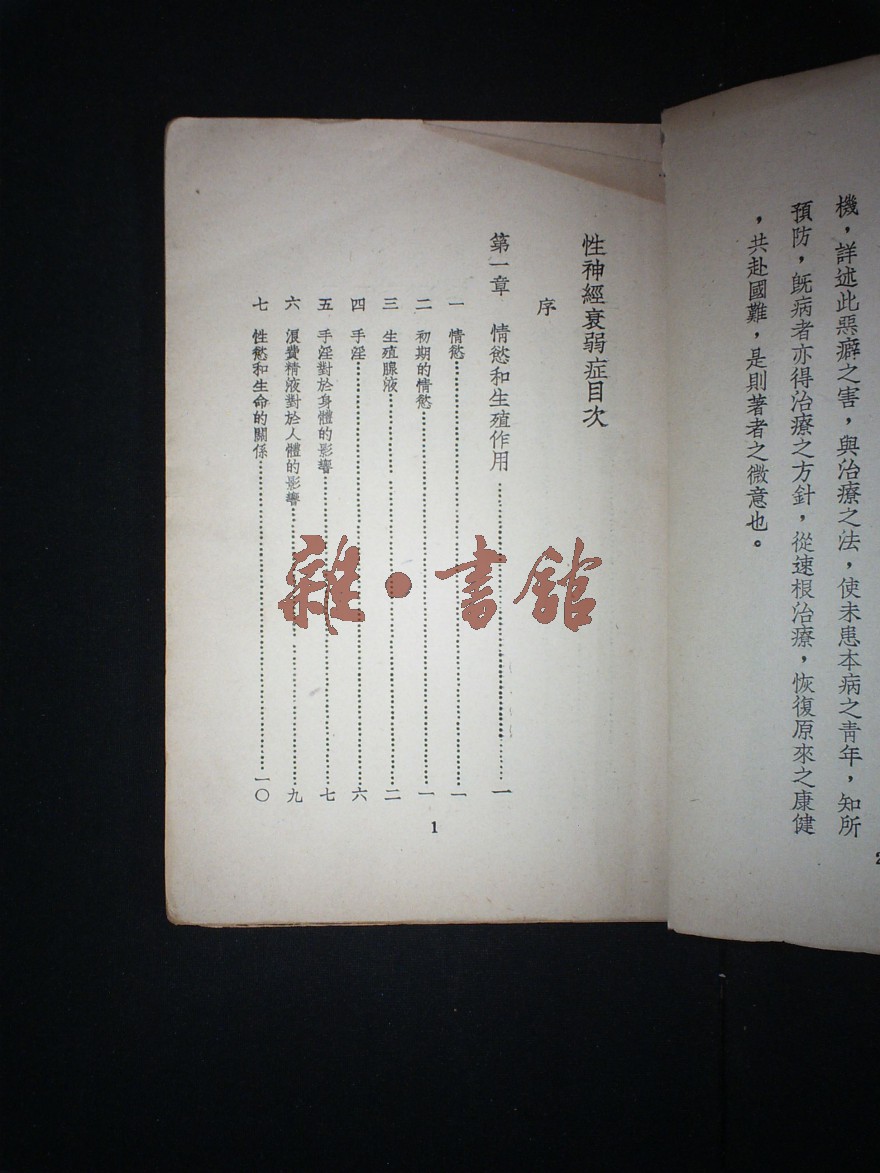 機，詳述此惡癖之害，與治療之法，使未患本病之靑年，知所
預防，旣病者亦得治療之方針，從速根治療，恢復原來之康健
，共赴國難，是則著者之微意也。
2
性神經衰弱症目次
序
第一章　情慾和生殖作用……一
一　情慾……一
二　初期的情慾……一
三　生殖腺液……二
四　手淫……六
五　手淫對於身體的影響……七
六　浪費精液對於人體的影響……九
七　性慾和生命的關係……一〇
1
雜·書館